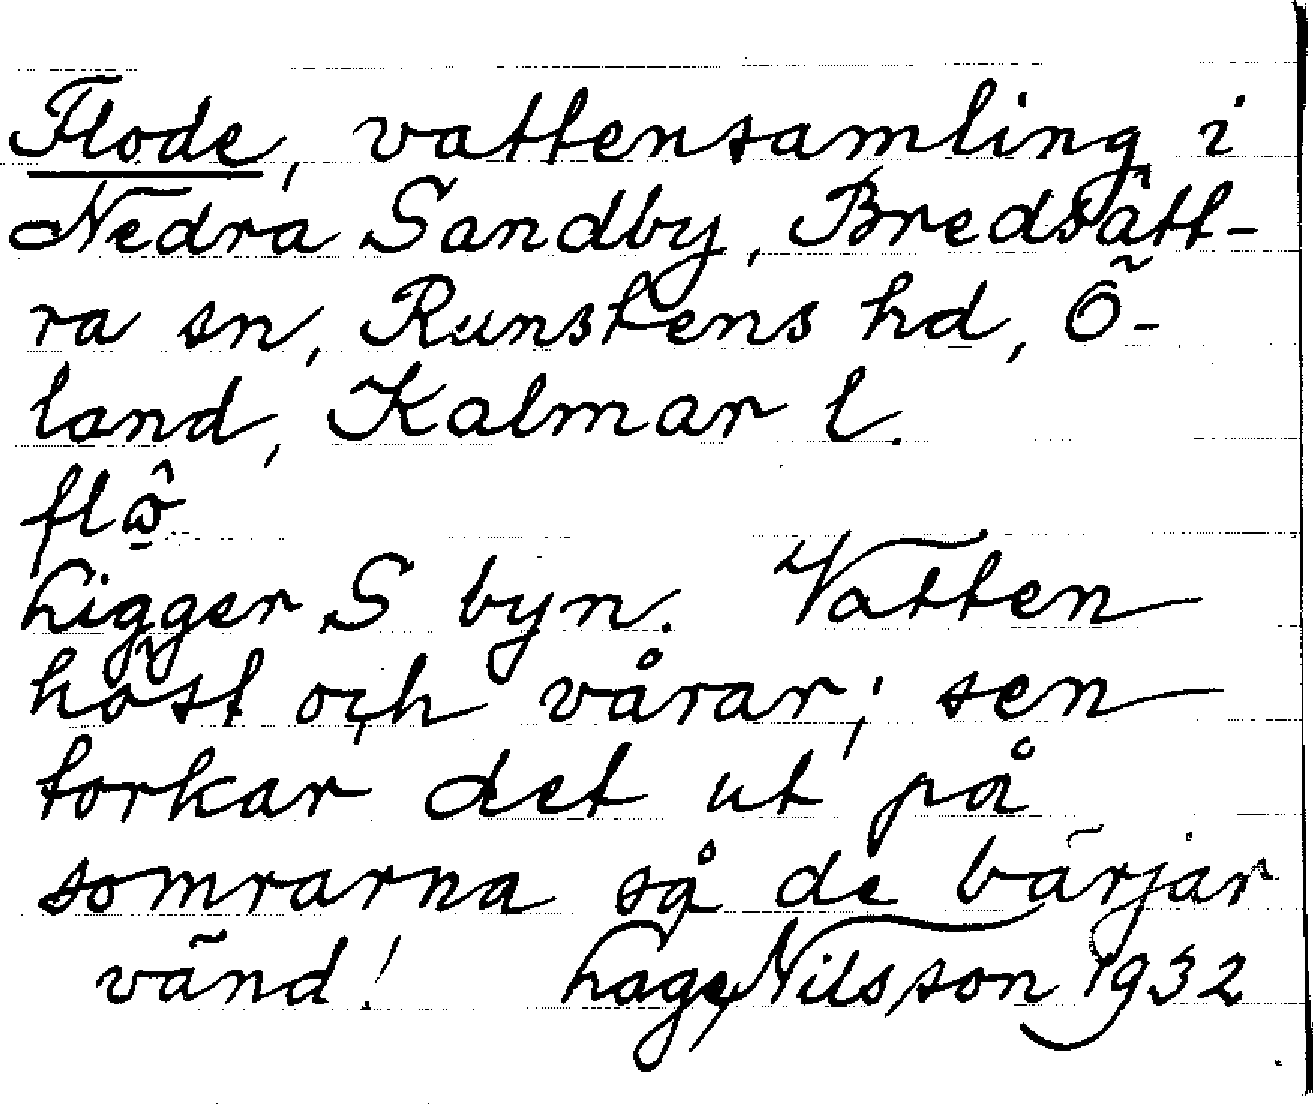 Flode, vattensamling i
Nedra Sandby, Bredsätt-
ra sn, Runstens hd, Ö-
land, Kalmar l.
Ligger S byn. Vatten
höst och vårar; sen
torkar det ut på
somrarna så de bärjar
vänd! Lage Nilsson 1932